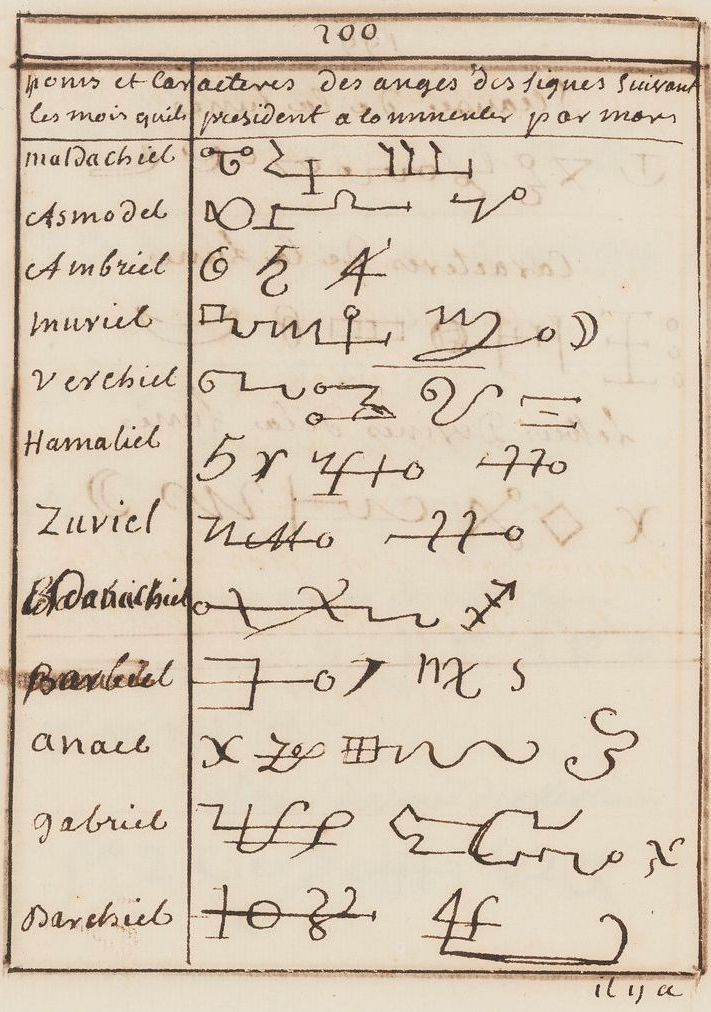 200
noms et Caracteres des anges des signes suivant
les mois quils president a commencer par mars
maldachiel
Asmodel
Ambriel
muriel
Verchiel
Hamaliel
Zuriel
Barbiel
anael
gabriel
Barchiel
il y a